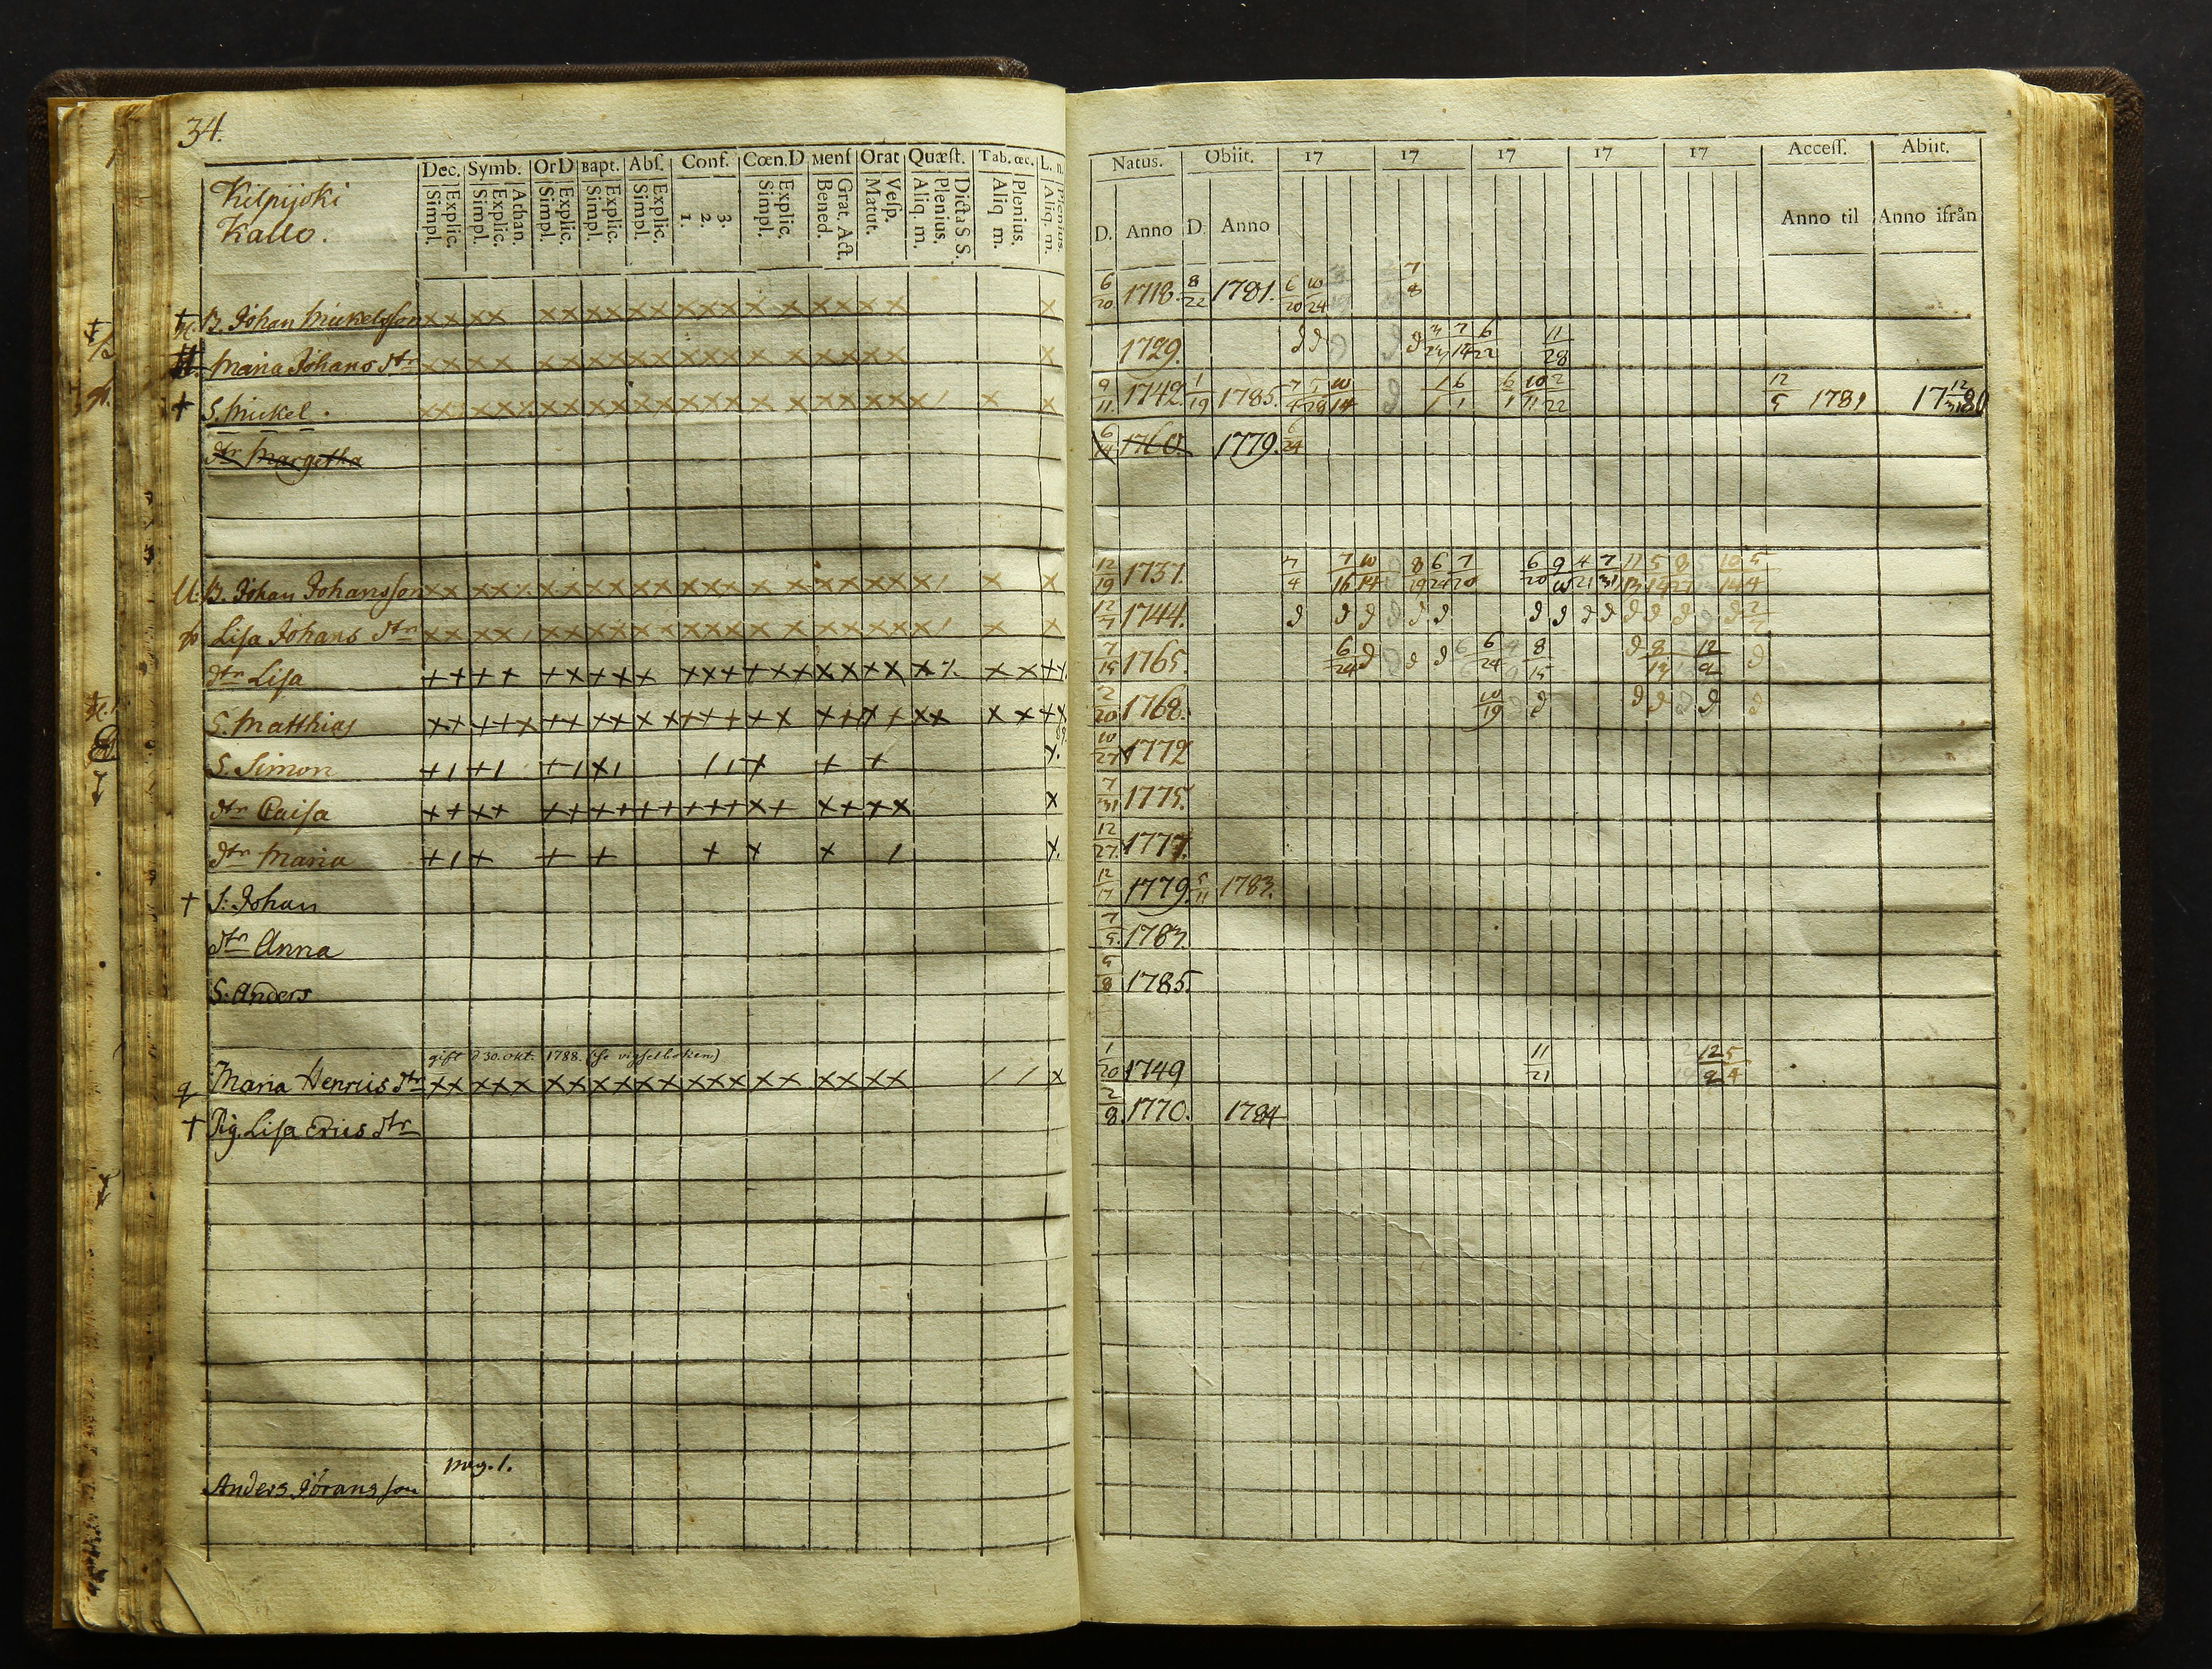 34.
Kilpijoki
Kallo.
Dec. Symb. OrD Bapt. Abs. Conf. Cœn.D Mens Orat Quæst. Tab. œc. L.
Simpl. Explic. Simpl. Explic. Athan. Simpl. Explic. Simpl. Explic. Simpl. Explic. 1. 2. 3. Simpl. Explic. Bened. Grat. Act. Matut. Vesp. Aliq m. Plenius. Dicta S S. Aliq m. Plenius. Aliq. m. Plenius.
Natus. Obiit. 17 17 17 17 17 Access. Abiit.
D. Anno D. Anno Anno til Anno ifrån
† B. Johan Mickelsson 6/20 1718. 8/22 1781. 6/20 10/24 7/8
Maria Johans dtr 1729. 7/14 6/22 11/28
† S. Mickel. 9/11. 1742 1/19 1785. 12/5 1781 17 12/31 80
dtr Margetha 1760. 1779. 6/24
B. Johan Johansson 12/19 1737. 7/4 7/16 10/14 8/19 6/24 7/20 6/20 9/10 4/21 7/31
Lisa Johans dtr 12/7 1744.
dtr Lisa 7/15 1765. 6/24 6/24 8/15 12/9
S. Matthias 2/20 1768. 10/19
S. Simon 10/27 1772
dtr Caisa 7/31 1775.
dtr Maria 12/27. 1777.
† S: Johan 12/7 1779. 5/11 1783.
dtr Anna 7/5. 1783.
S: Anders 5/8 1785.
gift d 30. okt. 1788. (se vigselboken)
Maria Henrics dtr 1/20 1749 11/21 12/9 5/4
† Pig. Lisa Erics dtr 2/8. 1770. 1784
pag. 1.
Anders Jöransson